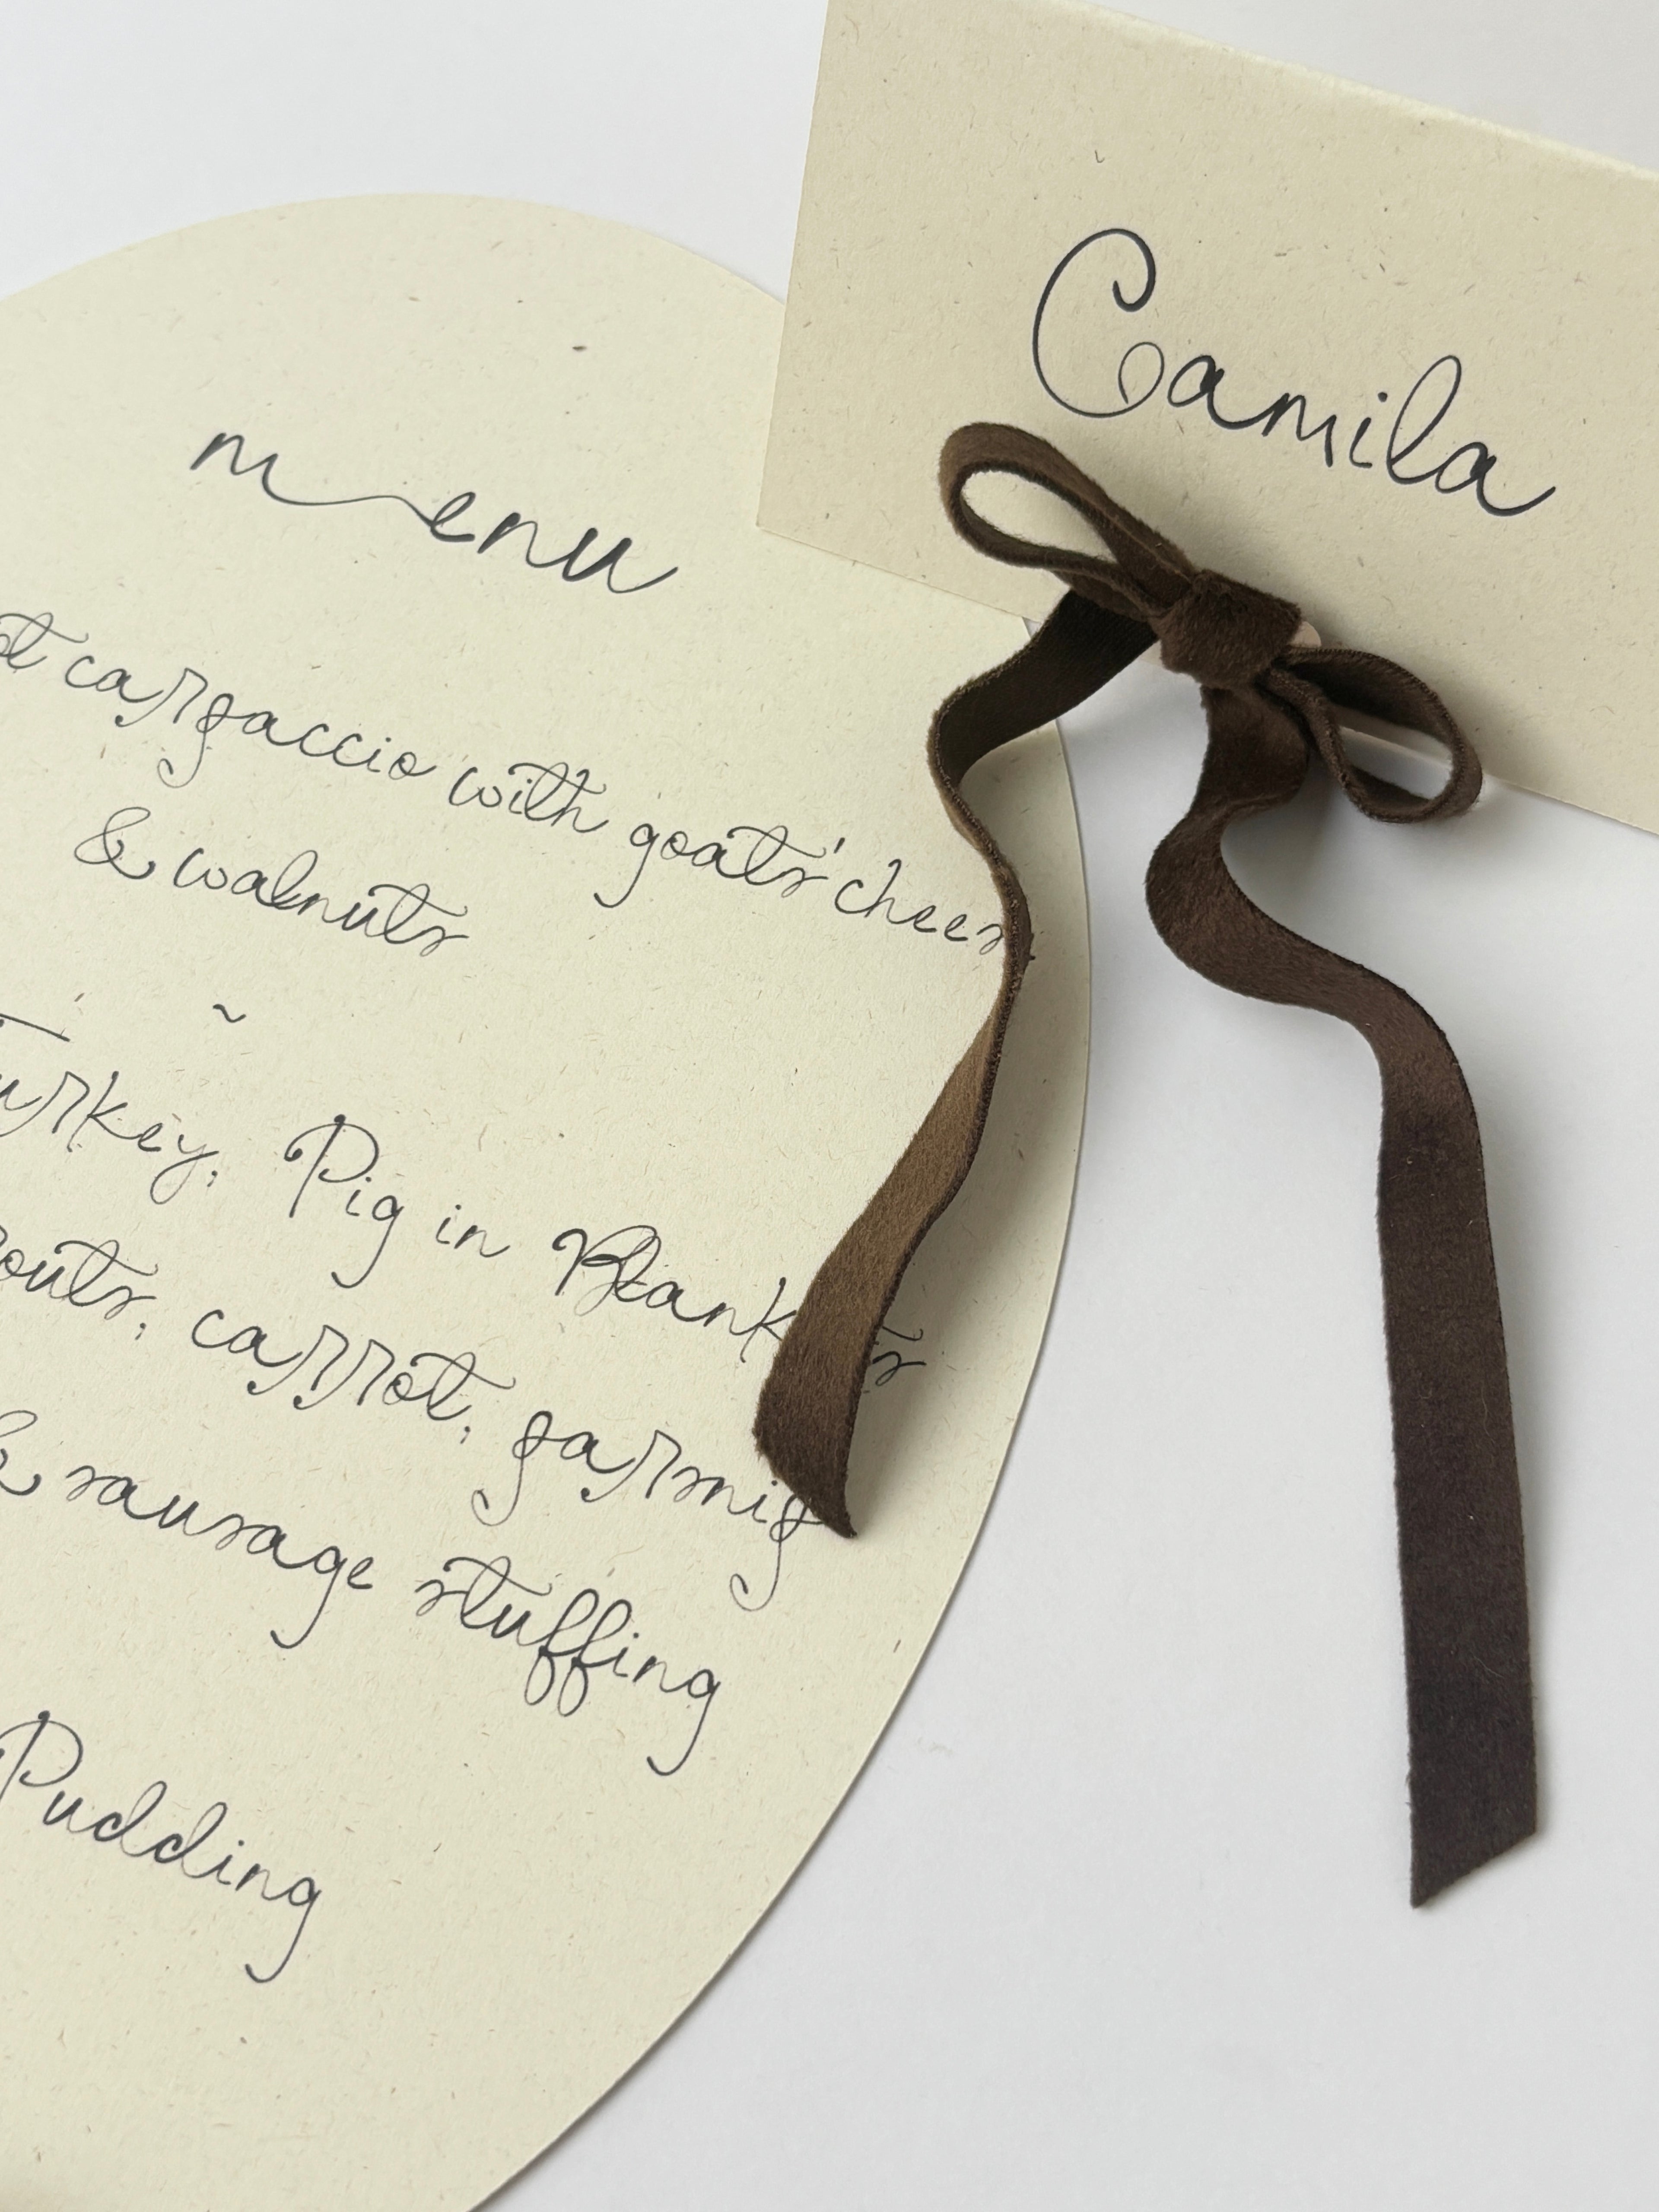 Camila
menu
carpaccio with goats' chees
& walnuts
~
urkey, Pig in Blank ts
outs, carrot, parsnip
& sausage stuffing
Pudding